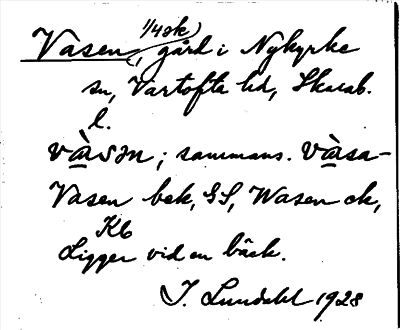 Vasen, 1/4 sk, gård i Nykyrke
sn, Vartofta hd, Skarab.
l.
vàsən; sammans. vàsa-
Vasen bek, GS, Wasen ek,
Kb
Ligger vid en bäck.
I. Lundahl 1928